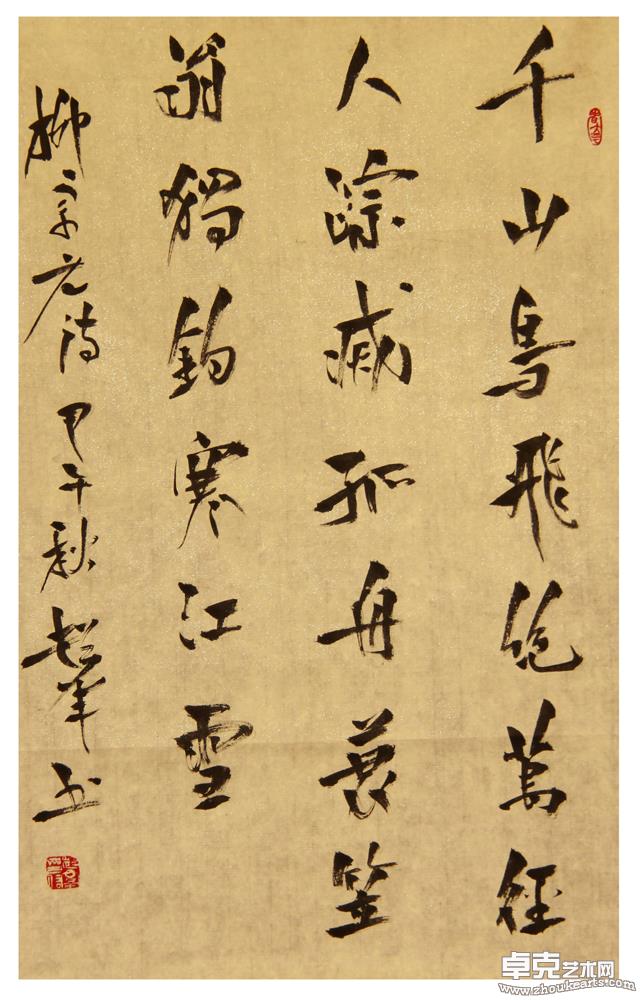 千山鳥飛絕萬徑
人踪滅孤舟蓑笠
翁獨釣寒江雪
柳宗元詩甲午秋
卓克艺术网
www.zhoukearts.com